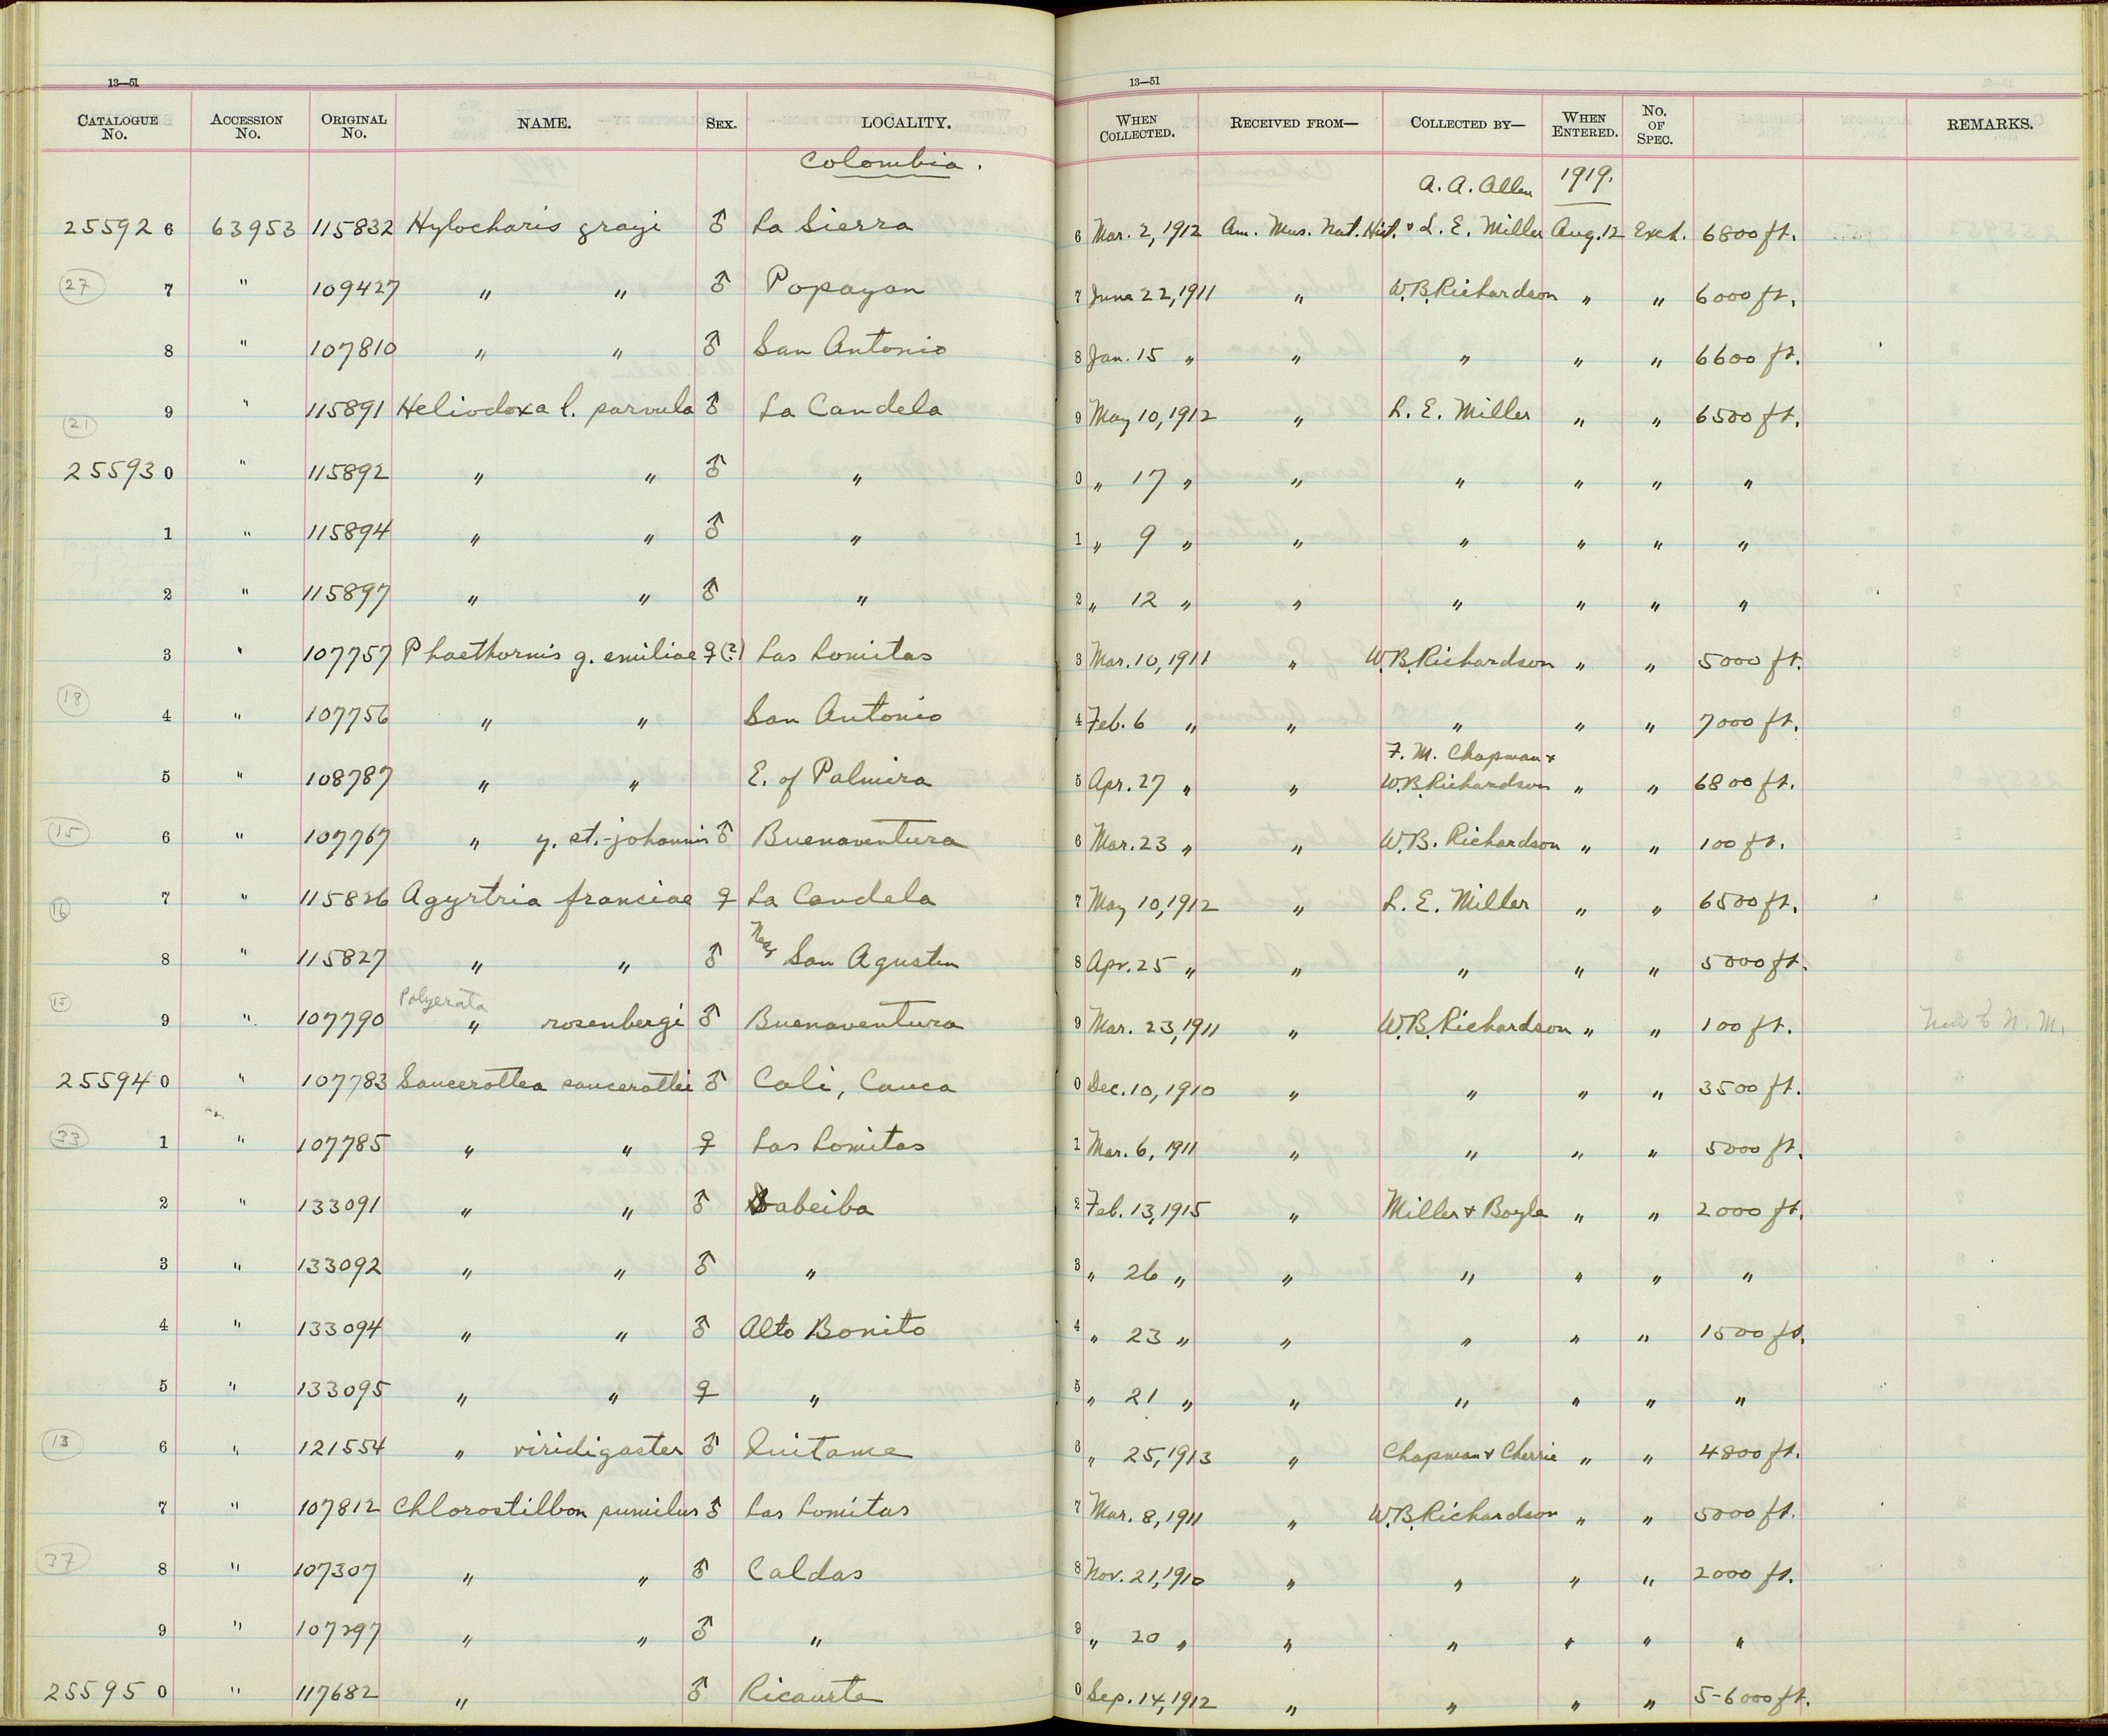 13—51
13—51
CATALOGUE No. ACCESSION No. ORIGINAL No. NAME. SEX. LOCALITY. WHEN COLLECTED. RECEIVED FROM— COLLECTED BY— WHEN ENTERED. No. OF SPEC. REMARKS.
Colombia.
A. A. Allen 1919.
25592 6 63953 115832 Hylocharis grayi ♂ La Sierra 6 Mar. 2, 1912 Am. Mus. Nat. Hist. & L. E. Miller Aug. 12 Exch. 6800 ft.
27 7 " 109427 " " ♂ Popayan 7 June 22, 1911 " W.B. Richardson " " 6000 ft.
8 " 107810 " " ♂ San Antonio 8 Jan. 15 " " " " " 6600 ft.
9 " 115891 Heliodoxa l. parvula ♂ La Candela 9 May 10, 1912 " L. E. Miller " " 6500 ft.
21
25593 0 " 115892 " " ♂ " 0 " 17 " " " " " "
1 " 115894 " " ♂ " 1 " 9 " " " " " "
2 " 115897 " " ♂ " 2 " 12 " " " " " "
3 " 107757 Phaethornis g. emiliae ♀(?) Las Lomitas 3 Mar. 10, 1911 " W.B. Richardson " " 5000 ft.
18
4 " 107756 " " San Antonio 4 Feb. 6 " " " " " 7000 ft.
F. M. Chapman &
5 " 108787 " " E. of Palmira 5 Apr. 27 " " W.B. Richardson " " 6800 ft.
15 6 " 107767 " y. st.-johannis ♂ Buenaventura 6 Mar. 23 " " W.B. Richardson " " 100 ft.
16 7 " 115826 Agyrtria franciae ♀ La Candela 7 May 10, 1912 " L. E. Miller " " 6500 ft.
8 " 115827 " " ♂ Near San Agustin 8 Apr. 25 " " " " " 5000 ft.
15 Polyerata
9 " 107790 " rosenbergi ♂ Buenaventura 9 Mar. 23, 1911 " W.B. Richardson " " 100 ft. New to N. M.
25594 0 " 107783 Saucerottea saucerottei ♂ Cali, Cauca 0 Dec. 10, 1910 " " " " 3500 ft.
33 1 " 107785 " " ♀ Las Lomitas 1 Mar. 6, 1911 " " " " 5000 ft.
2 " 133091 " " ♂ Dabeiba 2 Feb. 13, 1915 " Miller & Boyle " " 2000 ft.
3 " 133092 " " ♂ " 3 " 26 " " " " " "
4 " 133094 " " ♂ Alto Bonito 4 " 23 " " " " " 1500 ft.
5 " 133095 " " ♀ " 5 " 21 " " " " " "
13 6 " 121554 " viridigaster ♂ Quitame 6 " 25, 1913 " Chapman & Cherrie " " 4800 ft.
7 " 107812 Chlorostilbon pumilus ♂ Las Lomitas 7 Mar. 8, 1911 " W.B. Richardson " " 5000 ft.
37 8 " 107307 " " ♂ Caldas 8 Nov. 21, 1910 " " " " 2000 ft.
9 " 107297 " " ♂ " 9 " 20 " " " " " "
25595 0 " 117682 " ♂ Ricaurte 0 Sep. 14, 1912 " " " " 5-6000 ft.